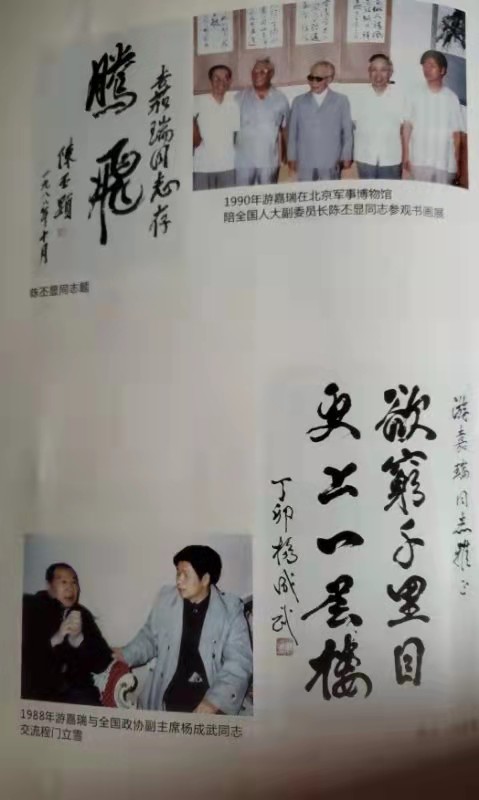 嘉瑞同志存
腾飞
陈丕显
一九八八年十月
陈丕显同志题
1990年游嘉瑞在北京军事博物馆
陪全国人大副委员长陈丕显同志参观书画展
游嘉瑞同志雅正
欲穷千里目
更上一层楼
丁卯杨成武
1988年游嘉瑞与全国政协副主席杨成武同志
交流程门立雪